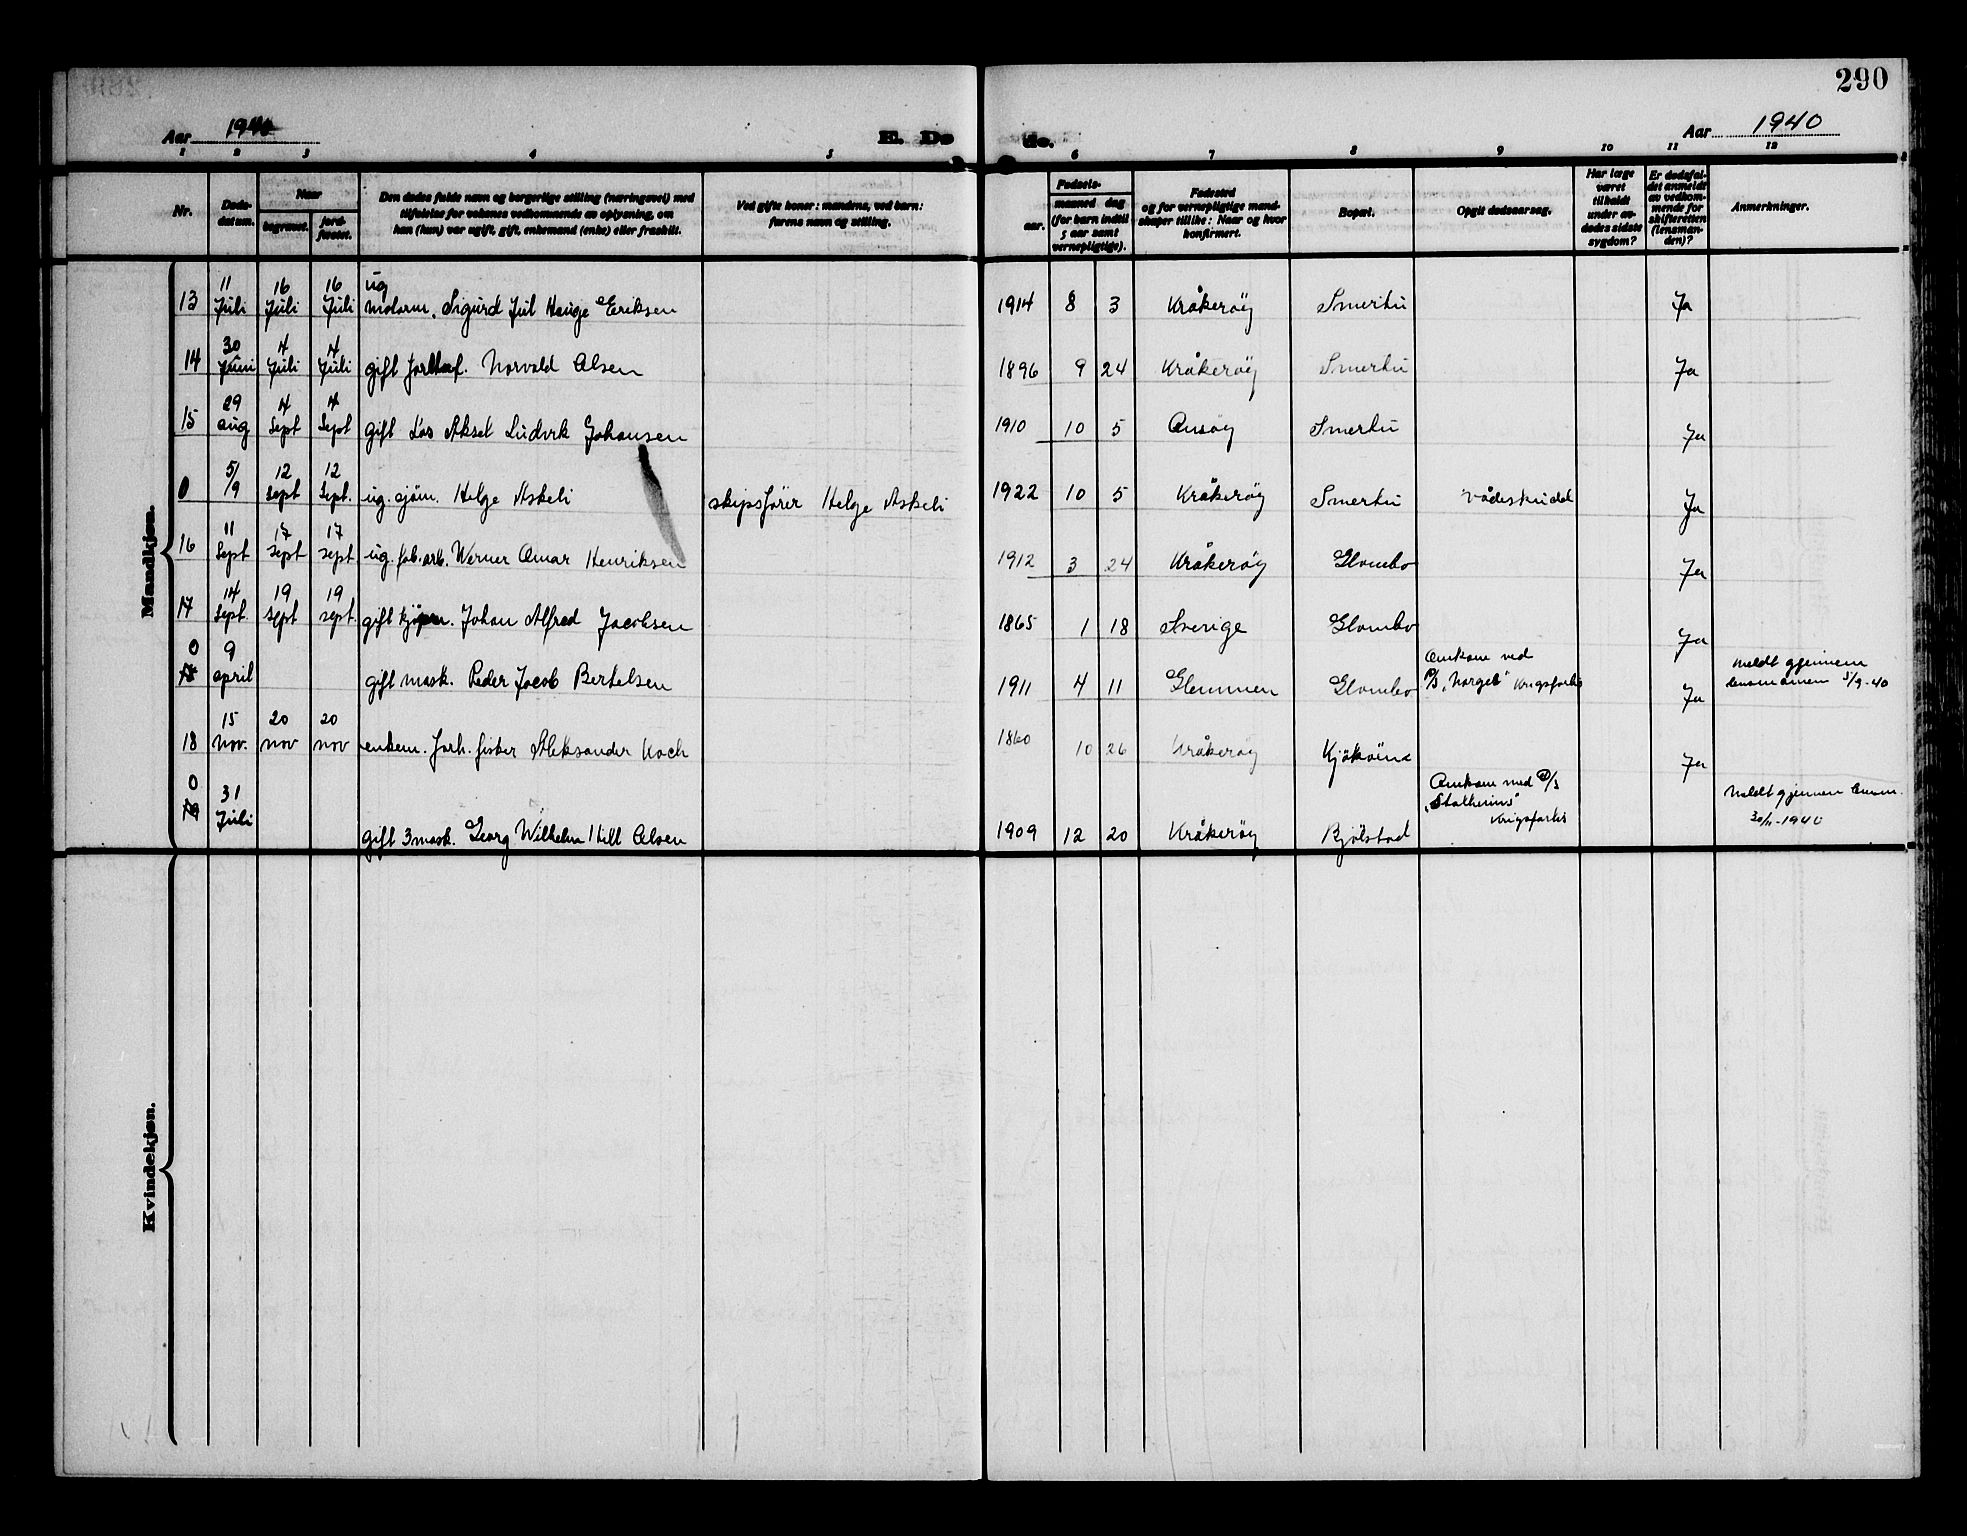 290
Aar 1940
E. Dø
de.
Aar 1940
1 2 3 4 5 6 7 8 9 10 11 12
Nr.
Døds-
datum.
Naar
begravet.
jord-
fæstet.
Den dødes fulde navn og borgerlige stilling (næringsvei) med
tilføielse for voksnes vedkommende av oplysning, om
han (hun) var ugift, gift, enkemand (enke) eller fraskilt.
Ved gifte koner: mandens, ved barn:
farens navn og stilling.
Fødsels-
aar.
maaned dag
(for barn indtil
5 aar samt
vernepligtige).
Fødested
og for vernepligtige mand-
skaper tillike: Naar og hvor
konfirmert.
Bopæl.
Opgit dødsaarsag.
Har læge
været
tilkaldt
under av-
dødes sidste
sygdom?
Er dødsfal-
det anmeldt
av vedkom-
mende for
skifteretten
(lensman-
den)?
Anmerkninger.
Mandkjøn.
13 11 Juli 16 Juli 16 Juli ug motorm. Sigurd Jul Hauge Eriksen 1914 8 3 Kråkerøy Smertu Ja
14 30 Juni 4 Juli 4 Juli gift Norvald Olsen 1896 9 24 Kråkerøy Smertu Ja
15 29 aug 4 Sept 4 Sept gift Los Aksel Ludvik Johansen 1910 10 5 Onsøy Smertu Ja
0 5/9 12 Sept 12 Sept. ug. sjøm. Helge Askeli skipsfører Helge Askeli 1922 10 5 Kråkerøy Smertu Vådeskudd Ja
16 11 Sept 17 Sept 17 sept ug. fab. arb. Werner Omar Henriksen 1912 3 24 Kråkerøy Glombo Ja
17 14 Sept. 19 sept 19 sept. gift Johan Alfred Jacobsen 1865 1 18 Sverige Glombo Ja
0 9 april gift mask. Peder Jacob Bertelsen 1911 4 11 Glemmen Glombo Omkom ved
Krigsforlis Ja Meldt gjennem
lensmannen 5/9-40
18 15 nov. 20 nov 20 nov enkem. forh. fisker Aleksander Koch 1860 10 26 Kråkerøy Kjøkøen Ja
0
19 31 Juli gift 3 mask. Georg Wilhelm Hill Olsen 1909 12 20 Kråkerøy Bjølstad Omkom med D/S
„Stalheims"
Krigsforlis Meldt gjennem lensm.
30/11-1940
Kvindekjøn.